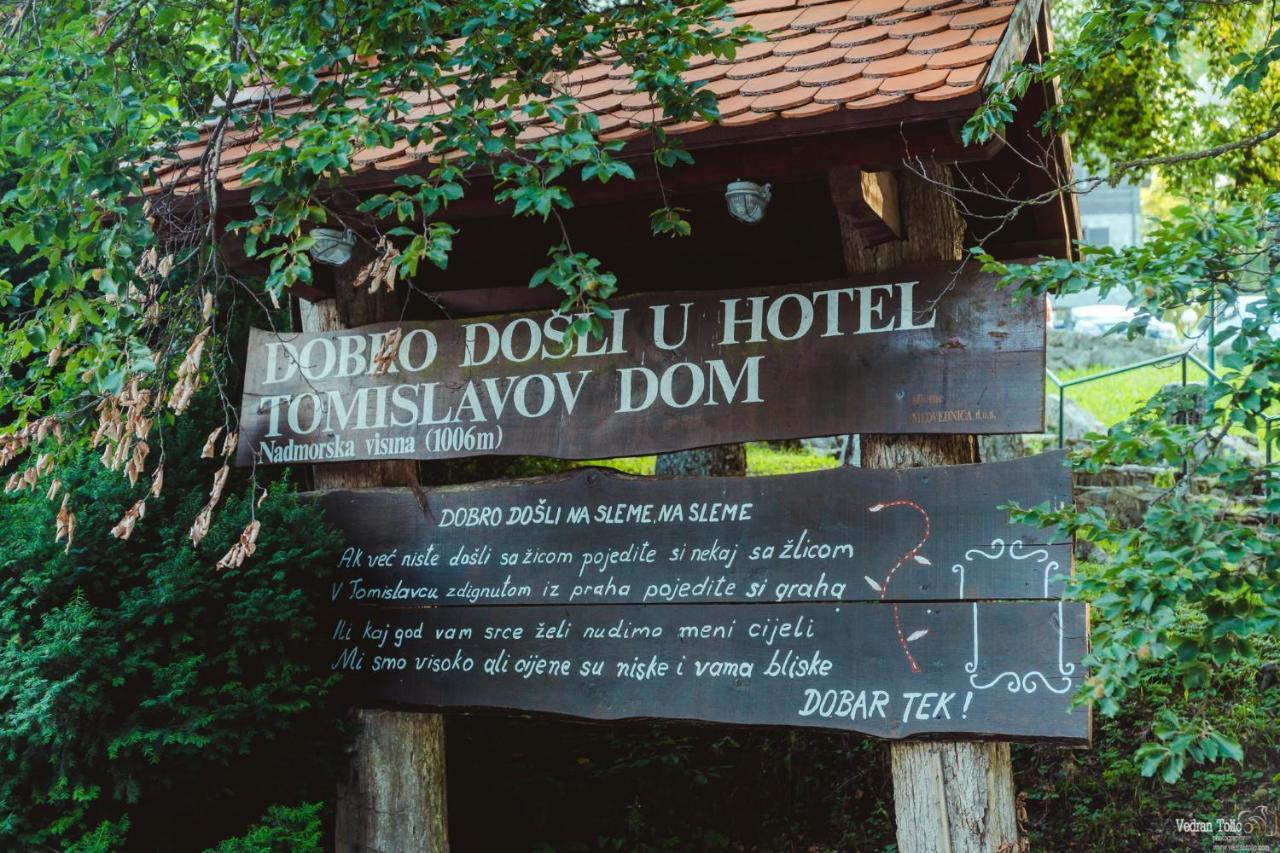 DOBRO DOŠLI U HOTEL
TOMISLAVOV DOM
Nadmorska visina (1006m)
MEDVEDNICA d.o.o.
DOBRO DOŠLI NA SLEME, NA SLEME
Ak već niste došli sa žicom pojedite si nekaj sa žlicom
V Tomislavcu zdignutom iz praha pojedite si graha
Ili kaj god vam srce želi nudimo meni cijeli
Mi smo visoko ali cijene su niske i vama bliske
DOBAR TEK!
Vedran Tolić
photography
www.vedrantolic.com